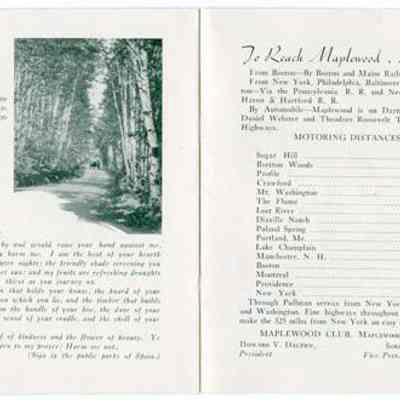 by and would raise your hand against me,
harm me. I am the heat of your hearth
nights; the friendly shade screening you
sun; and my fruits are refreshing draughts
thirst as you journey on.
that holds your house, the board of your
on which you lie, and the timber that builds
the handle of your hoe, the door of your
wood of your cradle, and the shell of your
of kindness and the flower of beauty. Ye
to my prayer; Harm me not.
(Sign in the public parks of Spain.)
To Reach Maplewood . .
From Boston—By Boston and Maine Rail
From New York, Philadelphia, Baltimore
ton—Via the Pennsylvania R. R. and New
Haven & Hartford R. R.
By Automobile—Maplewood is on
Daniel Webster and Theodore Roosevelt
Highways.
MOTORING DISTANCES
Sugar Hill
Bretton Woods
Profile
Crawford
Mt. Washington
The Flume
Lost River
Dixville Notch
Poland Spring
Portland, Me.
Lake Champlain
Manchester, N. H.
Boston
Montreal
Providence
New York
Through Pullman service from New York
and Washington. Fine highways throughout
make the 325 miles from New York an easy
MAPLEWOOD CLUB, MAPLEWOOD
President
Vice Pres.